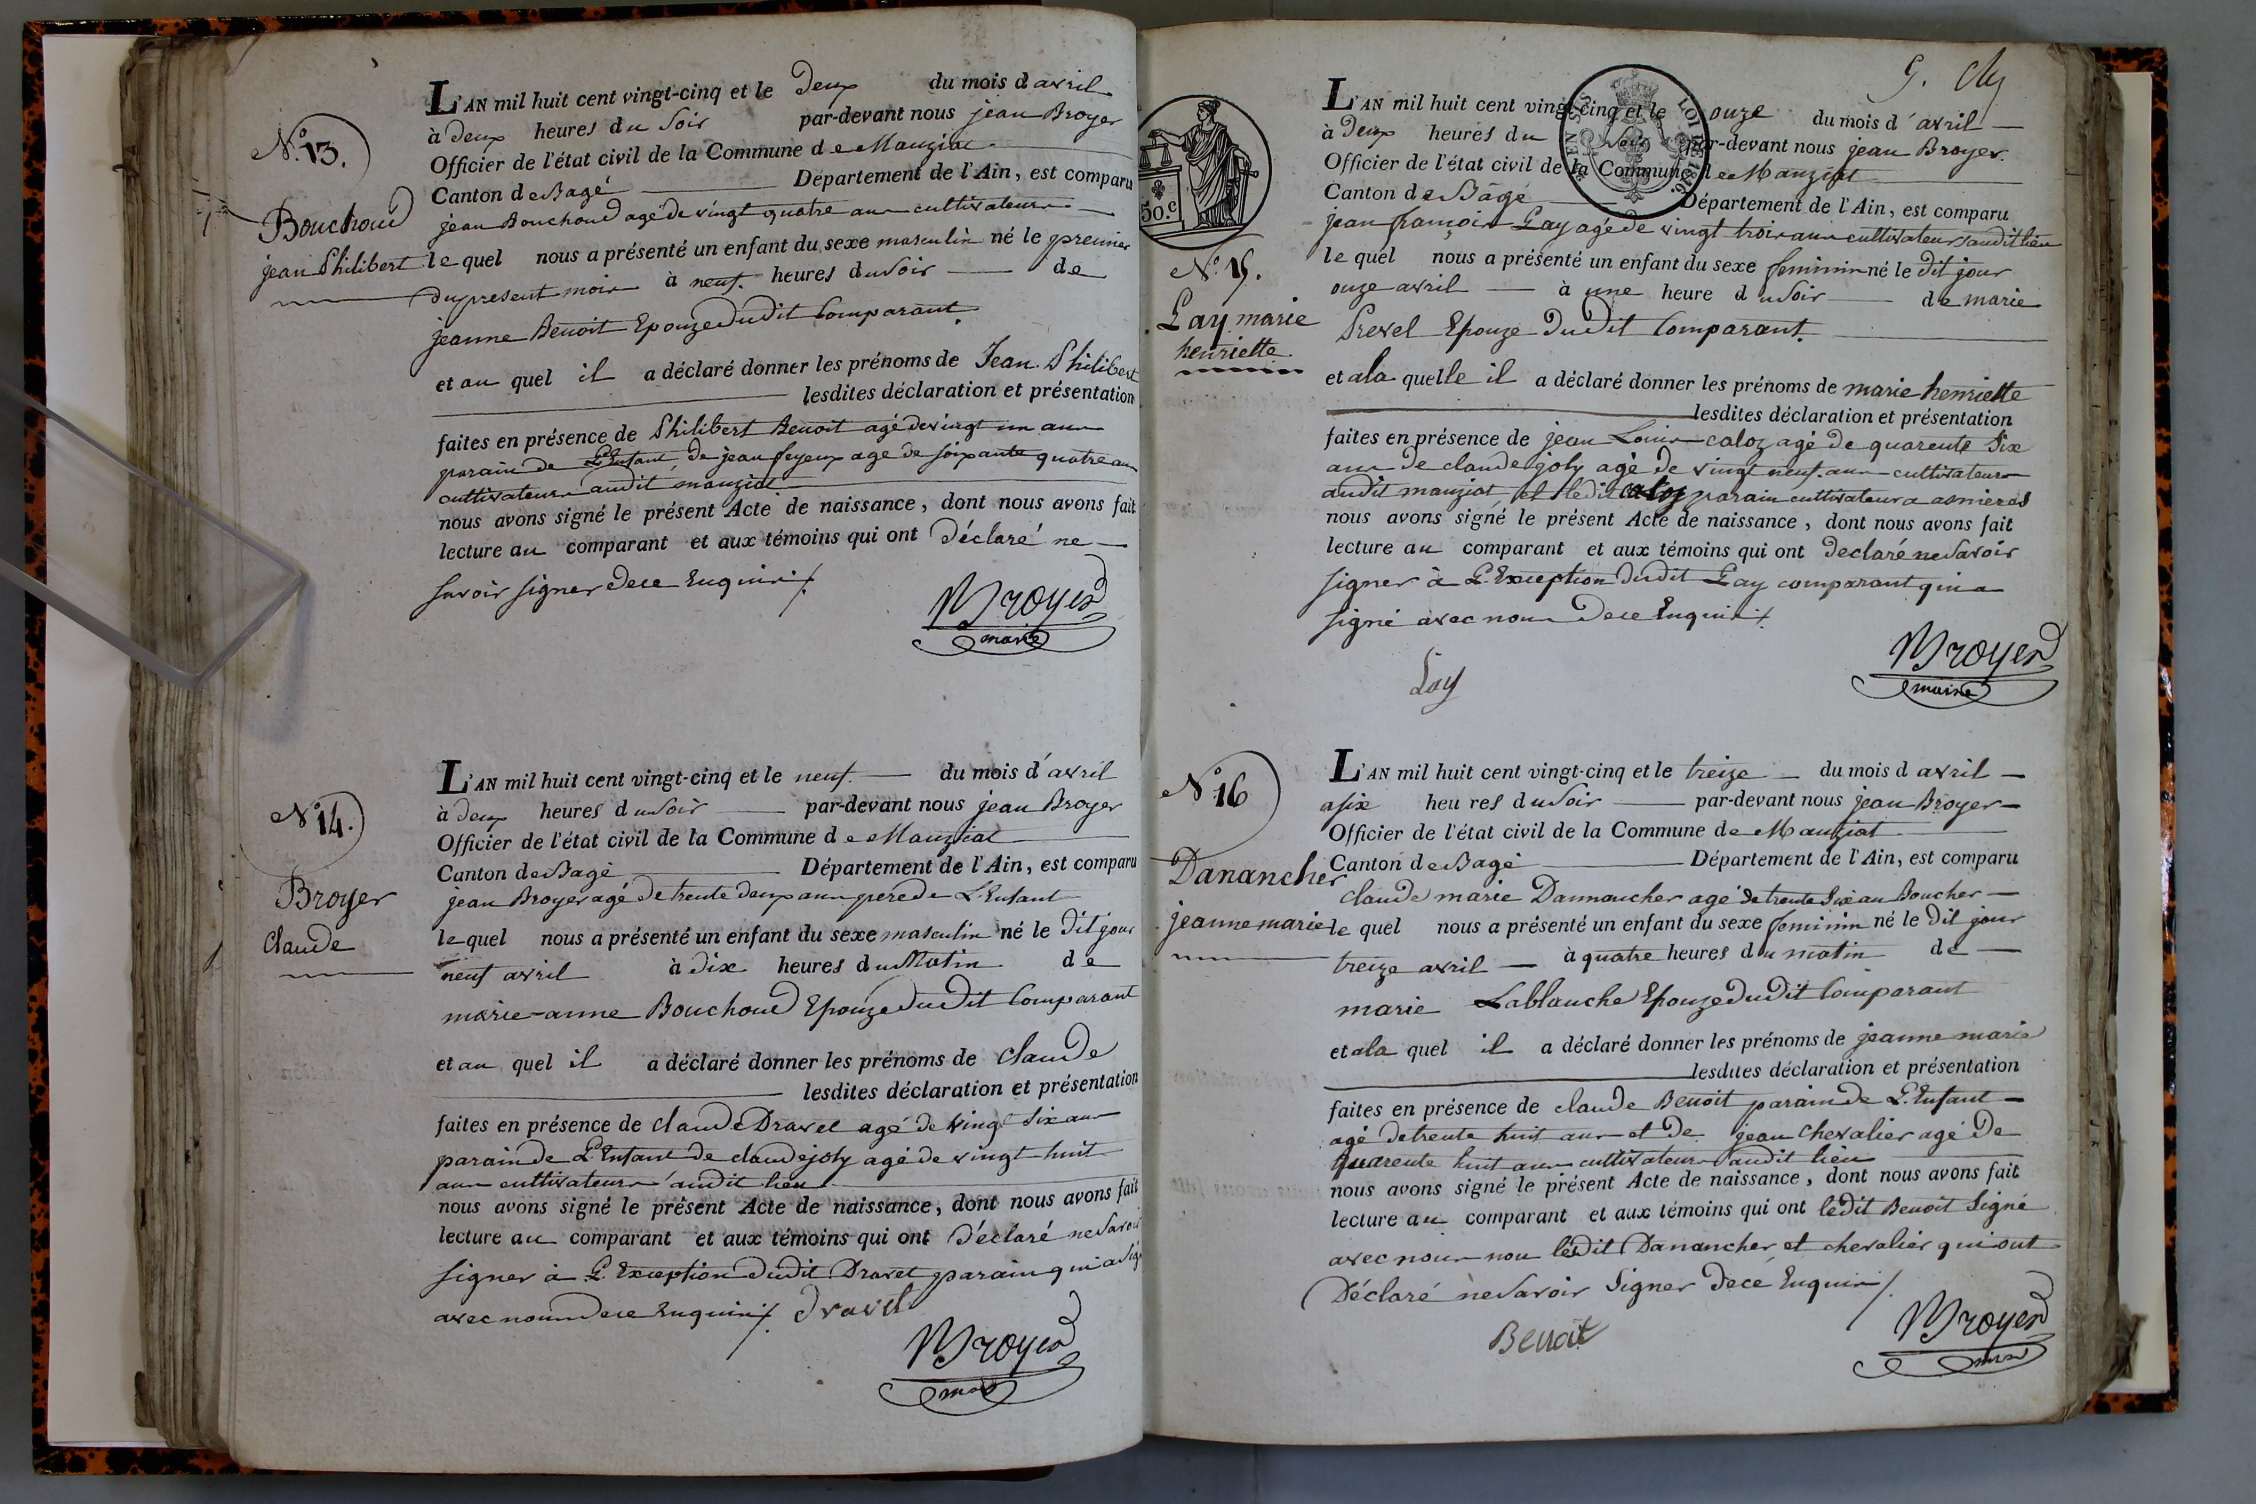 N.° 13.
Bouchoud
jean Philibert
L'AN mil huit cent vingt-cinq et le Deux du mois d avril
à Deux heures du Soir par-devant nous jean Broyer
Officier de l'état civil de la Commune de Manziat
Canton de Bagé Département de l'Ain, est comparu
jean Bouchoud agé de vingt quatre ans cultivateur
lequel nous a présenté un enfant du sexe masculin né le premier
du present mois à neuf heures du soir de
jeanne Benoit Epouze dudit Comparant.
et au quel il a déclaré donner les prénoms de Jean Philibert
lesdites déclaration et présentation
faites en présence de Philibert Benoit agé de vingt un ans
parain de L'Enfant, de jean feyeux agé de soixante quatre ans
cultivateurs audit manziat
nous avons signé le présent Acte de naissance, dont nous avons fait
lecture au comparant et aux témoins qui ont Déclaré ne
savoir signer de ce Enquis ./.
Broyer
maire
N.° 14.
Broyer
Claude
L'AN mil huit cent vingt-cinq et le neuf du mois d'avril
à deux heures du soir par-devant nous jean Broyer
Officier de l'état civil de la Commune de Manziat
Canton de Bagé Département de l'Ain, est comparu
jean Broyer agé de trente deux ans pére de L'Enfant
lequel nous a présenté un enfant du sexe masculin né le dit jour
neuf avril à dix heures du Matin de
marie-anne Bouchoud Epouze dudit Comparant
et au quel il a déclaré donner les prénoms de Claude
lesdites déclaration et présentation
faites en présence de Claude Dravet agé de vingt six ans
parain de L'Enfant de claude joly agé de vingt huit
ans cultivateurs audit lieu
nous avons signé le présent Acte de naissance, dont nous avons fait
lecture au comparant et aux témoins qui ont Déclaré ne Savoir
signer à L'Exception dudit Dravet parain qui a Signé
avec nous de ce Enquis ./. Dravet
Broyer
maire
50.c
EN SUS
LOI DE 1816.
N.° 15.
Gay marie
henriette
L'AN mil huit cent vingt-cinq et le onze du mois d'avril
à Deux heures du Soir par-devant nous jean Broyer
Officier de l'état civil de la Commune de Manziat
Canton de Bâgé Département de l'Ain, est comparu
jean françois Gay agé de vingt trois ans cultivateur audit lieu
lequel nous a présenté un enfant du sexe feminin né le dit jour
onze avril à une heure du soir de marie
Prevel Epouze dudit Comparant.
et a la quelle il a déclaré donner les prénoms de marie henriette
lesdites déclaration et présentation
faites en présence de jean Louis caloz agé de quarente Six
ans de claude joly agé de vingt neuf ans cultivateurs
audit manziat et ledit caloz parain cultivateur a asnieres
nous avons signé le présent Acte de naissance, dont nous avons fait
lecture au comparant et aux témoins qui ont declaré ne Savoir
signer à L'Exception dudit Gay comparant qui a
signé avec nous de ce Enquis ./.
Gay
Broyer
maire
N.° 16
Danancher
jeanne marie
L'AN mil huit cent vingt-cinq et le treize du mois d avril
a six heures du soir par-devant nous jean Broyer
Officier de l'état civil de la Commune de Manziat
Canton de Bagé Département de l'Ain, est comparu
Claude marie Dannancher agé de trente Six an Boucher
lequel nous a présenté un enfant du sexe feminin né le dit jour
treize avril à quatre heures du matin de
marie Lablanche Epouze dudit Comparant
et a la quel il a déclaré donner les prénoms de jeanne marie
lesdites déclaration et présentation
faites en présence de claude Benoit parain de L'Enfant
agé de trente huit ans et de jean Chevalier agé de
quarente huit ans cultivateurs audit lieu
nous avons signé le présent Acte de naissance, dont nous avons fait
lecture au comparant et aux témoins qui ont ledit Benoit Signé
avec nous non lesdit Danancher et chevalier qui ont
Déclaré ne Savoir Signer de cé Enquis ./.
Benoit
Broyer
maire